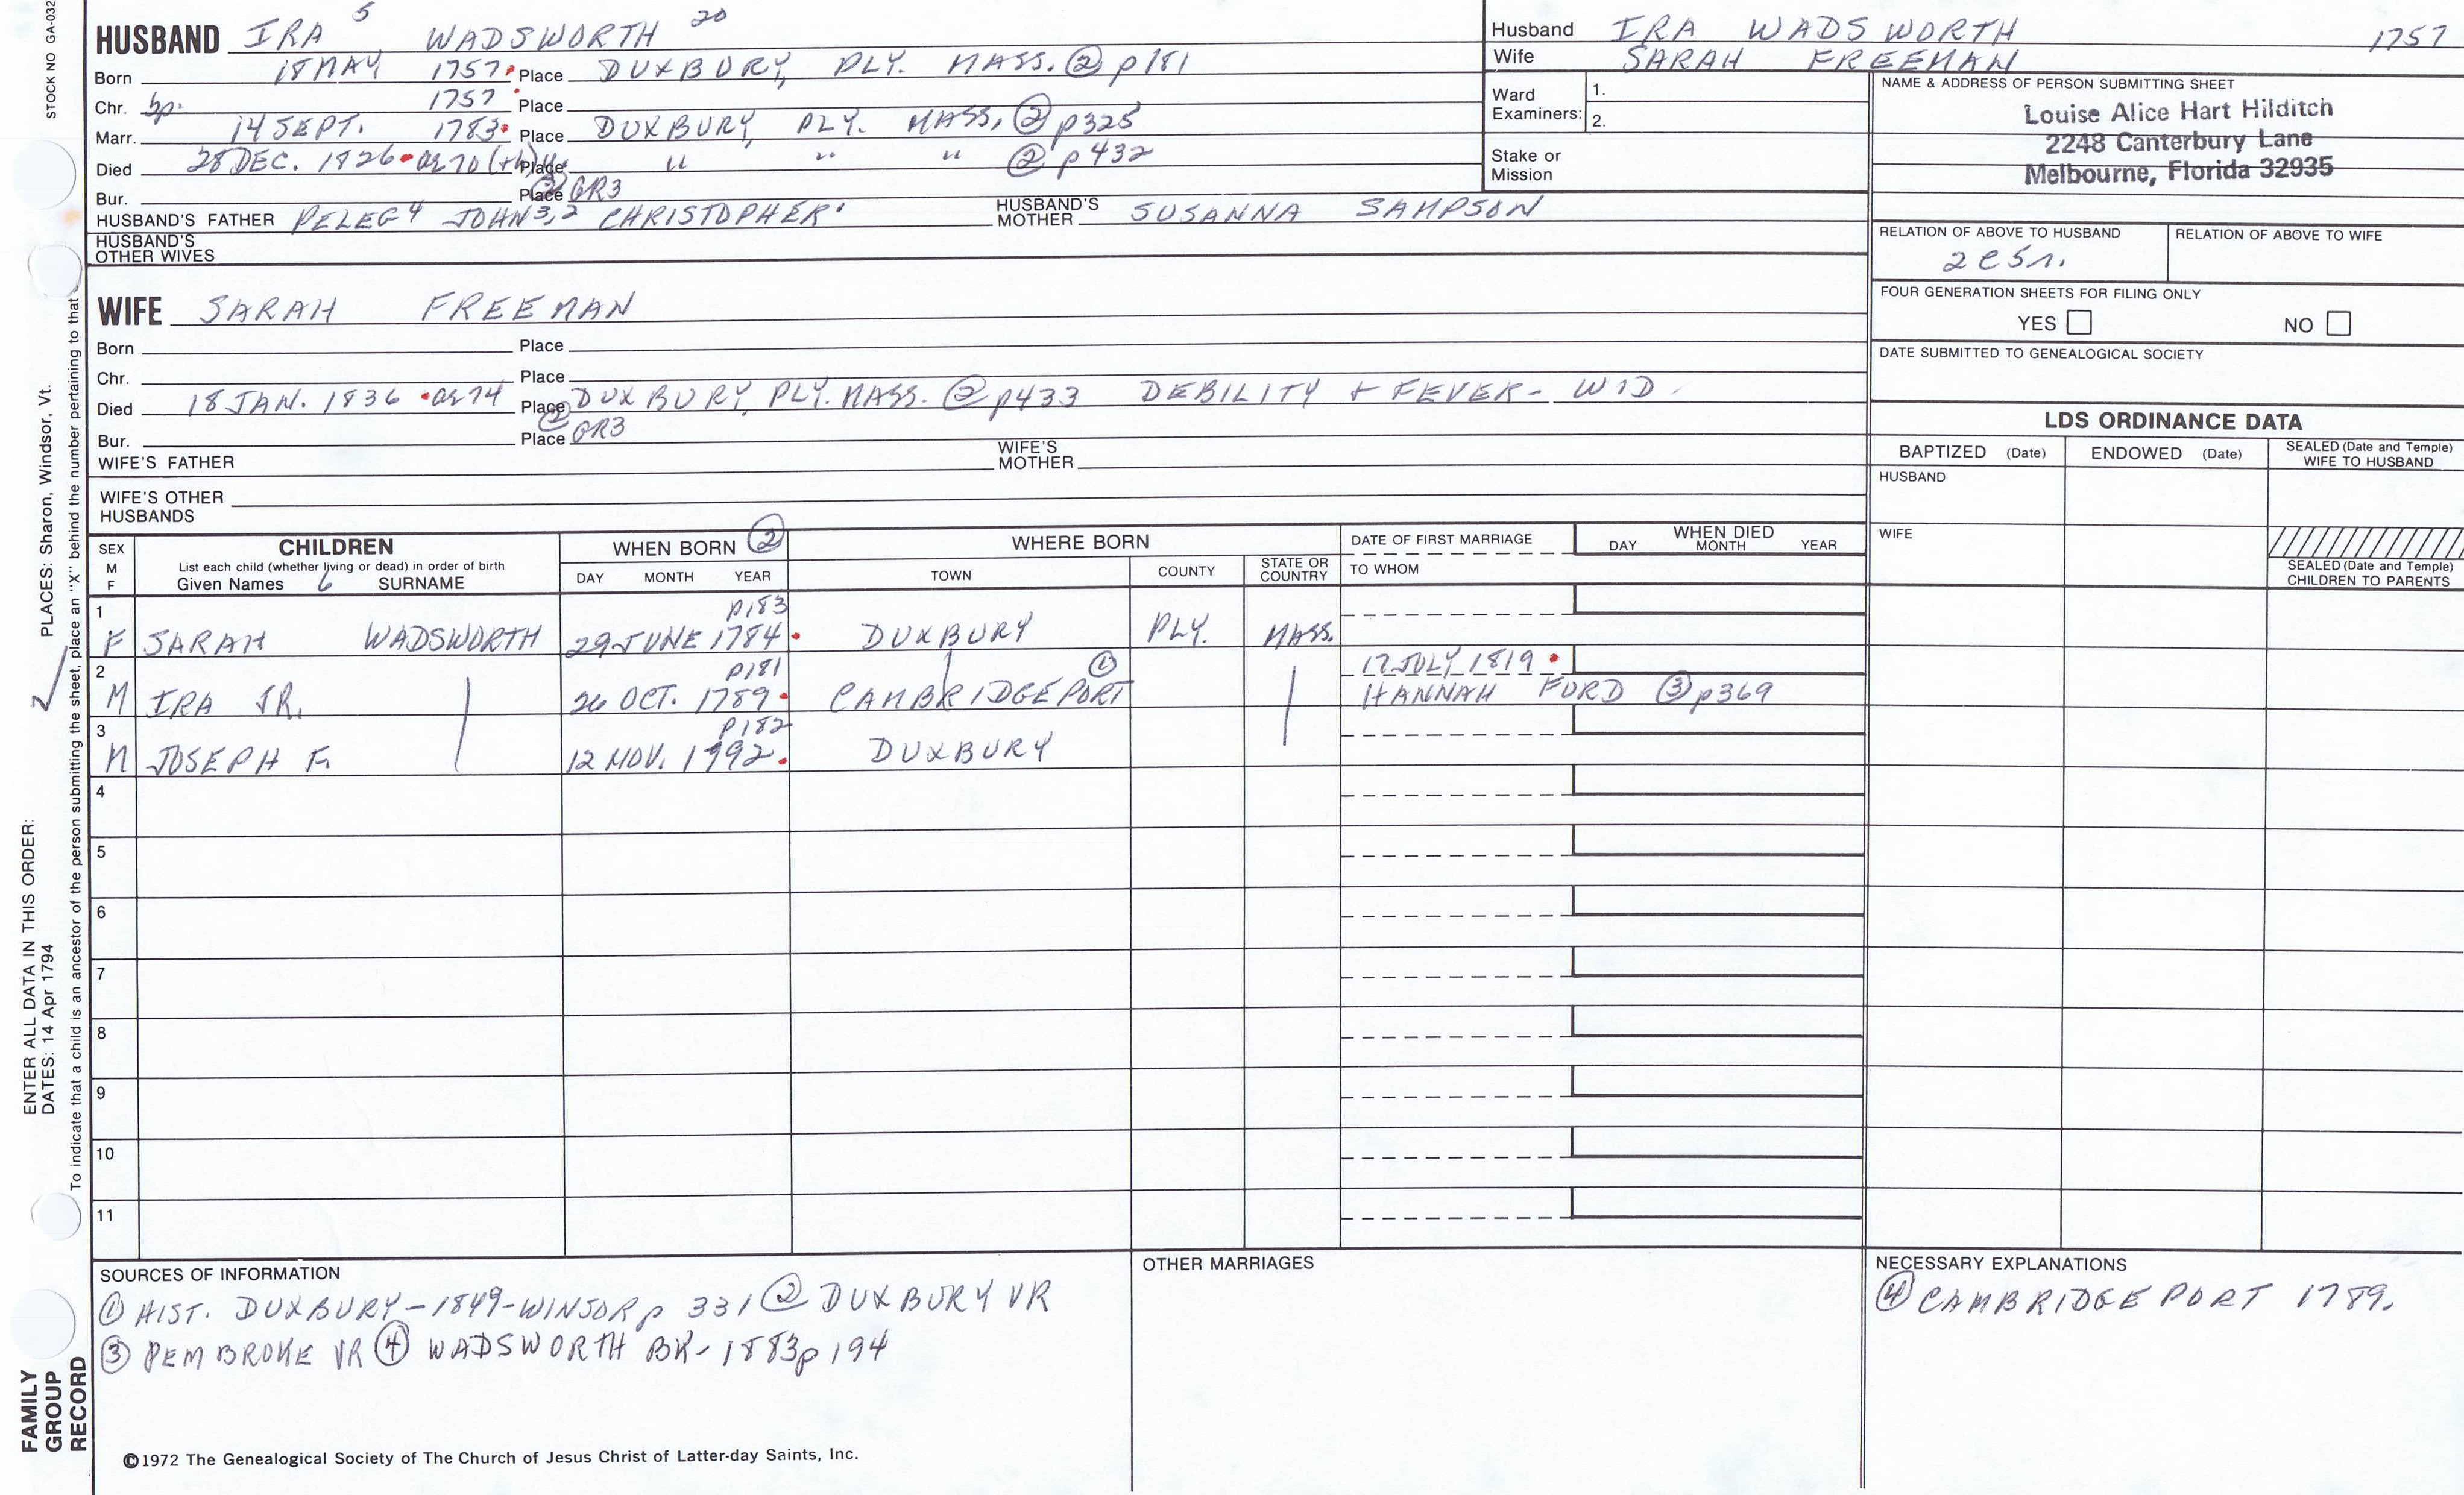 STOCK NO GA-032
HUSBAND IRA 5 WADSWORTH 20
Born 18 MAY 1757 Place DUXBURY, PLY. MASS. ② p181
Chr. bp. 1757 Place
Marr. 14 SEPT. 1783 Place DUXBURY, PLY. MASS, ② p325
Died 28 DEC. 1826 ag 70 (th) Place " " " ② p432
Bur. Place ② GR3
HUSBAND'S FATHER PELEG 4 JOHN 3,2 CHRISTOPHER 1 HUSBAND'S MOTHER SUSANNA SAMPSON
HUSBAND'S OTHER WIVES
WIFE SARAH FREEMAN
Born Place
Chr. Place
Died 18 JAN. 1836 ag 74 Place DUXBURY, PLY. MASS. ② p433 DEBILITY + FEVER - WID.
Bur. Place ② GR3
WIFE'S FATHER WIFE'S MOTHER
WIFE'S OTHER HUSBANDS
Husband IRA WADSWORTH 1757
Wife SARAH FREEMAN
Ward Examiners: 1.
2.
Stake or Mission
NAME & ADDRESS OF PERSON SUBMITTING SHEET
Louise Alice Hart Hilditch
2248 Canterbury Lane
Melbourne, Florida 32935
RELATION OF ABOVE TO HUSBAND RELATION OF ABOVE TO WIFE
2C5r.
FOUR GENERATION SHEETS FOR FILING ONLY
YES NO
DATE SUBMITTED TO GENEALOGICAL SOCIETY
LDS ORDINANCE DATA
BAPTIZED (Date) ENDOWED (Date) SEALED (Date and Temple) WIFE TO HUSBAND
HUSBAND
WIFE
SEALED (Date and Temple) CHILDREN TO PARENTS
SEX M F
CHILDREN
List each child (whether living or dead) in order of birth
Given Names 6 SURNAME
WHEN BORN ②
DAY MONTH YEAR
WHERE BORN
TOWN COUNTY STATE OR COUNTRY
DATE OF FIRST MARRIAGE
TO WHOM
WHEN DIED
DAY MONTH YEAR
1 p183
F SARAH WADSWORTH 29 JUNE 1784 DUXBURY PLY. MASS.
2 p181 ① 17 JULY 1819
M IRA JR. 26 OCT. 1789 CAMBRIDGEPORT HANNAH FORD ③ p369
3 p182
M JOSEPH F. 12 NOV. 1792 DUXBURY
4
5
6
7
8
9
10
11
SOURCES OF INFORMATION
① HIST. DUXBURY-1849-WINSOR p 331 ② DUXBURY VR
③ PEMBROKE VR ④ WADSWORTH BK-1883 p 194
OTHER MARRIAGES
NECESSARY EXPLANATIONS
④ CAMBRIDGEPORT 1789.
©1972 The Genealogical Society of The Church of Jesus Christ of Latter-day Saints, Inc.
FAMILY
GROUP
RECORD
ENTER ALL DATA IN THIS ORDER:
DATES: 14 Apr 1794 PLACES: Sharon, Windsor, Vt.
To indicate that a child is an ancestor of the person submitting the sheet, place an "X" behind the number pertaining to that